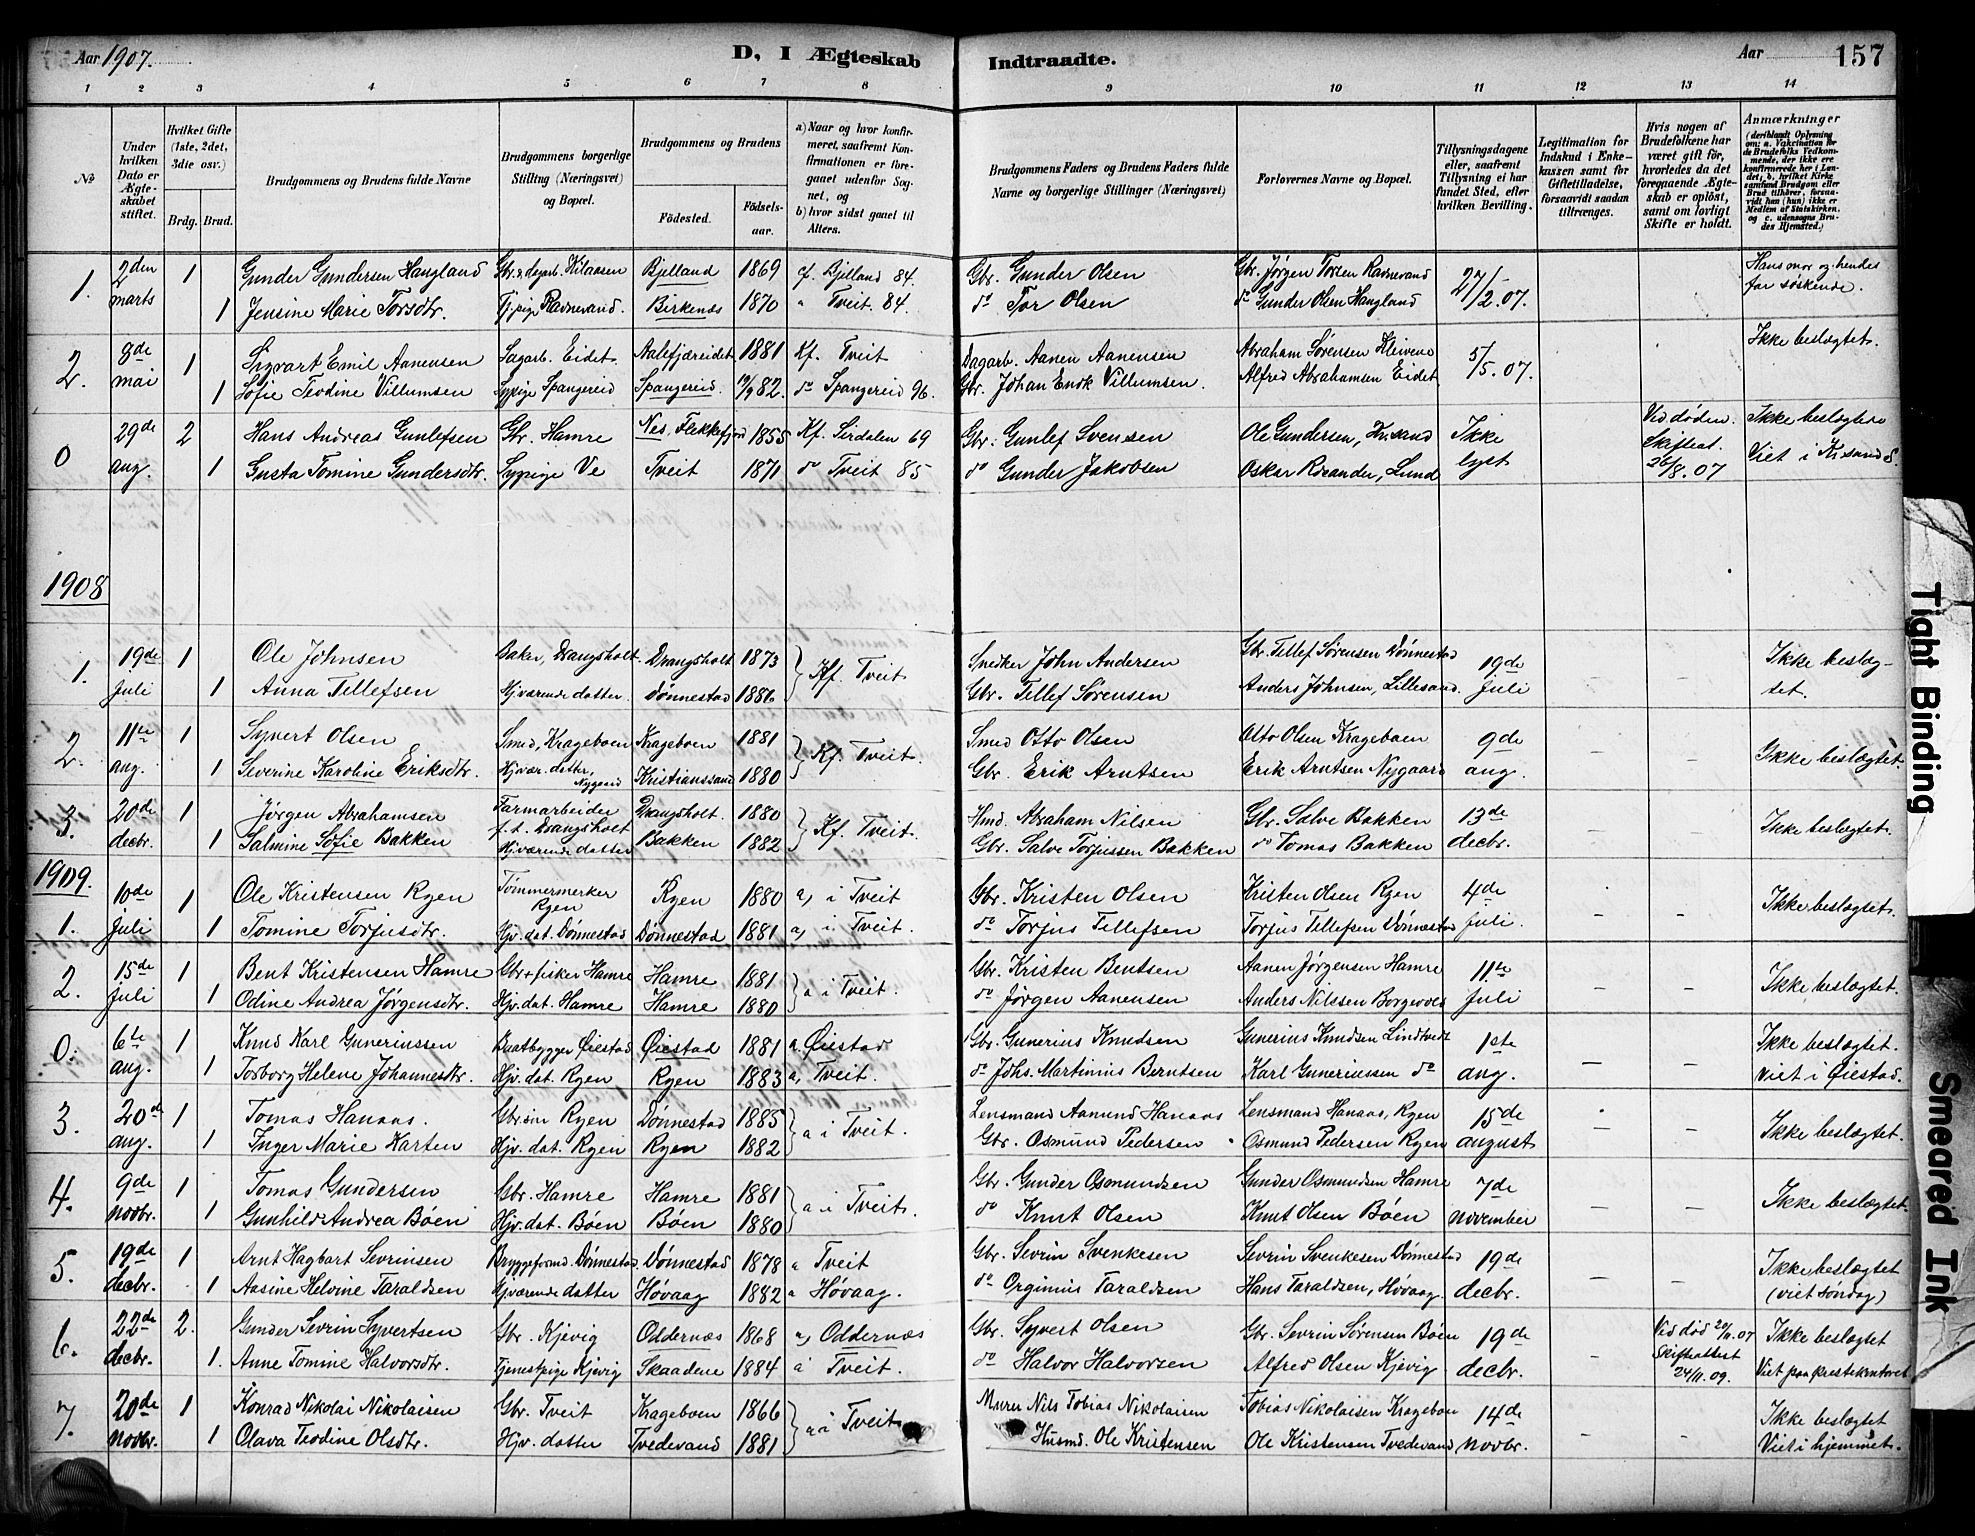 Aar 1907.
D, I Ægteskab Indtraadte.
Aar 157
1 2 3 4 5 6 7 8 9 10 11 12 13 14
No
Under hvilken Dato er Ægteskabet stiftet.
Hvilket Gifte (1ste, 2det, 3die osv.)
Brdg. Brud.
Brudgommens og Brudens fulde Navne
Brudgommens borgerlige Stilling (Næringsvei) og Bopæl.
Brudgommens og Brudens
Fødested.
Fødselsaar.
a) Naar og hvor konfirmeret, saafremt Konfirmationen er foregaaet udenfor Sognet, og
b) hvor sidst gaaet til Alters.
Brudgommens Faders og Brudens Faders fulde Navne og borgerlige Stillinger (Næringsvei)
Forlovernes Navne og Bopæl.
Tillysningsdagene eller, saafremt Tillysning ei har fundet Sted, efter hvilken Bevilling.
Legitimation for Indskud i Enkekassen samt for Giftetilladelse, forsaavidt saadan tiltrænges.
Hvis nogen af Brudefolkene har været gift før, hvorledes da det foregaaende Ægteskab er opløst, samt om lovligt Skifte er holdt.
Anmærkninger
(deriblandt Oplysning om: a. Vakcination for de Brudefolks Vedkommende, der ikke ere konfirmerede her i Landet; b. hvilket Kirkesamfund Brudgom eller Brud tilhører, forsaavidt han (hun) ikke er Medlem af Statskirken, og c. udensogns Brudes Hjemsted.)
1. 2den 1 Gunder Gundersen Haugland Gbr. & dagarb. Kilaasen Bjelland 1869 cf. Bjelland 84. Gbr. Gunder Olsen Gbr. Jørgen Torsen Ravnevand 27/2.07. Hans mor og hendes
marts 1 Jensine Marie Torsdtr. Tj.pige Ravnevand. Birkenes 1870 " Tveit 84. do Tor Olsen do Gunder Olsen Haugland far søskende.
2. 8de 1 Sigvart Emil Aanensen Sagarb. Eidet Aalefjæreidet 1881 Kf. Tveit Dagarb. Aanen Aanensen Abraham Sørensen Kleivene 5/5.07. Ikke beslægtet.
mai 1 Sofie Teodine Villumsen Sypige Spangereid Spangereid 19/9 82. do Spangereid 96. Gbr. Johan Enok Villumsen. Alfred Abrahamsen Eidet
0 29de 2 Hans Andreas Gunlefsen Gbr. Hamre Nes, Flekkefjord 1855 Kf. Sirdalen 69 Gbr. Gunlef Svensen Ole Gundersen, Krsand Ikke Ved døden. Ikke beslægtede
aug. 1 Gusta Tomine Gundersdtr. Sypige Ve Tveit 1871 do Tveit 85 do Gunder Jakobsen Oskar Rosander, Lund lyst Skifteat. 26/8.07 Viet i Kr.sand S.
1908
1. 19de 1 Ole Johnsen Baker, Drangsholt Drangsholt 1873 Kf. Tveit Snedker John Andersen Gbr. Tellef Sørensen Dønnestad 19de Ikke beslæg-
juli 1 Anna Tellefsen Hj.værende datter. Dønnestad 1886 Gbr. Tellef Sørensen Anders Johnsen, Lillesand. juli tet.
2. 11te 1 Syvert Olsen Smed, Krageboen Krageboen 1881 Kf. Tveit. Smed Otto Olsen Otto Olsen Krageboen 9de – Ikke beslægtet.
aug. 1 Severine Karoline Eriksdtr. Hj.vær. datter, Nygaard Kristianssand 1880 Gbr. Erik Arntsen Erik Arntsen Nygaard aug. –
3. 20de 1 Jørgen Abrahamsen Farmarbeider Drangsholt. 1880 Kf. Tveit. Hmd. Abraham Nilsen Gbr. Salve Bakken 13de – Ikke beslægtet.
decbr. 1 Salmine Sofie Bakken f.t. Drangsholt Hj.værende datter Bakken 1882 Gbr. Salve Torjussen Bakken do Tomas Bakken decbr. –
1909.
1. 10de 1 Ole Kristensen Ryen Tømmermerker Ryen Ryen 1880 a, i Tveit Gbr. Kristen Olsen Kristen Olsen Ryen 4de Ikke beslægtet.
juli 1 Tomine Torjusdtr. Hjv. dat. Dønnestad Dønnestad 1881 a, i Tveit. do Torjus Tellefsen Torjus Tellefsen Dønnestad juli. – –
2. 15de 1 Bent Kristensen Hamre Gbr + fisker Hamre Hamre 1881 a i Tveit. Gbr. Kristen Bentsen Aanen Jørgensen Hamre 11te Ikke beslægtet.
juli 1 Odine Andrea Jørgensdtr. Hjv. dat. Hamre Hamre 1880 do Jørgen Aanensen Anders Nilssen juli – –
0. 6te 1 Knud Karl Guneriussen Baatbygger Øiestad Øiestad 1881 a. Øiestad Gbr. Gunerius Knudsen Gunerius Knudsen Lindtveit 1ste Ikke beslægtet.
aug. 1 Torborg Helene Johannesdtr. Hjv. dat. Ryen Ryen 1883 a, Tveit. do Johs. Martinius Berntsen Karl Guneriussen do aug. – – Viet i Øiestad.
3. 20de 1 Tomas Hanaas. Gbr.søn Ryen Dønnestad 1885 a i Tveit. Lensmand Aamund Hanaas Lensmand Hanaas, Ryen 15de Ikke beslægtet.
aug. 1 Inger Marie Harten Hjv. dat. Ryen Ryen 1882 Gbr. Osmund Pedersen Osmund Pedersen Ryen august – –
4. 9de 1 Tomas Gundersen Gbr. Hamre Hamre 1881 a i Tveit. Gbr. Gunder Osmundsen Gunder Osmundsen Hamre 7de Ikke beslægtet.
novbr. 1 Gunhild Andrea Bøen Hjv. dat. Bøen Bøen 1880 do Knut Olsen Knut Olsen Bøen november – –
5. 19de 1 Arnt Hagbart Sevrinsen Bryggeformd. Dønnestad. Dønnestad 1878 " Tveit Gbr. Sevrin Svenkesen Sevrin Svenkesen Dønnestad 19de Ikke beslægtet
decbr. 1 Aasine Helvine Taraldsen Hjværende datter Høvaag 1882 " Høvaag. do Orginius Taraldsen Hans Taraldsen, Høvaag. decbr. – – (viet søndag)
6. 22de 2. Gunder Sevrin Syvertsen Gbr. Kjevig Oddernæs 1868 a, Oddernæs Gbr. Syvert Olsen Gbr. Sevrin Sørensen Bøen 19de Ved død 20/11.07 Ikke beslægtet
decbr. 1. Anne Tomine Halvorsdtr. Tjenestpige Kjevig Skaadene 1884 a' Tveit. do Halvor Halvorsen Alfred Olsen Kjevig decbr. – Skifteattest 24/11.09. Viet paa prestekontoret
7. 20de 1 Konrad Nikolai Nikolaisen Gbr. Tveit Krageboen 1866 a i Tveit Murer Nils Tobias Nikolaisen Tobias Nikolaisen Krageboen 14de Ikke beslægtet
novbr. 1 Olava Teodine Olsdtr. Hjv. datter Tvedevand 1881 Husmd. Ole Kristensen Ole Kristensen Tvedevand novbr. – – Viet i hjemmet.
Tight Binding
Smeared Ink